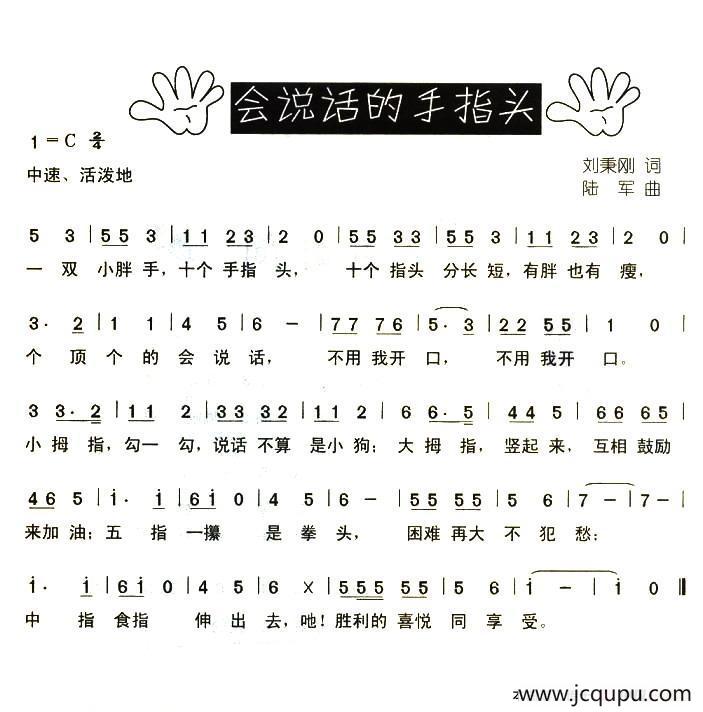 会说话的手指头
1=C 2/4
中速、活泼地
刘秉刚 词
陆 军 曲
5 3 | 55 3 | 11 23 | 2 0 | 55 33 | 55 3 | 11 23 | 2 0 |
一 双 小胖 手，十个 手指 头， 十个 指头 分长 短，有胖 也有 瘦，
3· 2 | 1 1 | 4 5 | 6 － | 77 76 | 5· 3 | 22 55 | 1 0 |
个 顶 个 的 会 说 话， 不用 我开 口， 不用 我开 口。
3 3·2 | 11 2 | 33 32 | 11 2 | 6 6·5 | 44 5 | 66 65 |
小 拇 指，勾一 勾，说话 不算 是小 狗；大 拇 指，竖起 来，互相 鼓励
46 5 | i· i | 6i 0 | 4 5 | 6 － | 55 55 | 5 6 | 7 － | 7 － |
来加 油；五 指 一攥 是 拳 头， 困难 再大 不 犯 愁；
i· i | 6i 0 | 4 5 | 6 X | 555 55 | 5 6 | i － | i 0 ‖
中 指 食指 伸 出 去，吔！胜利的 喜悦 同 享 受。
www.jcqupu.com